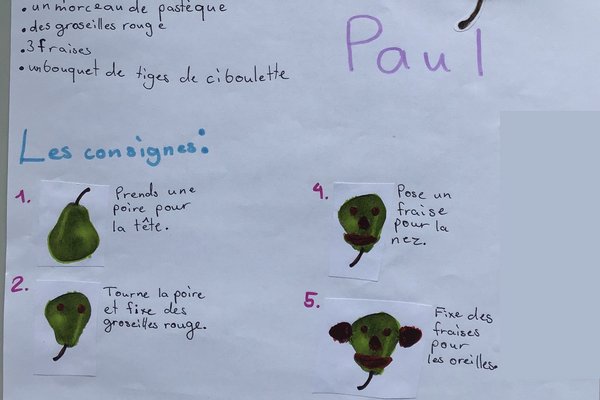 • un morceau de pastèque
• des groseilles rouge
• 3 fraises
• un bouquet de tiges de ciboulette
Paul
Les consignes:
1. Prends une
poire pour
la tête.
2. Tourne la poire
et fixe des
groseilles rouge.
4. Pose un
fraise
pour la
nez.
5. Fixe des
fraises
pour
les oreilles.